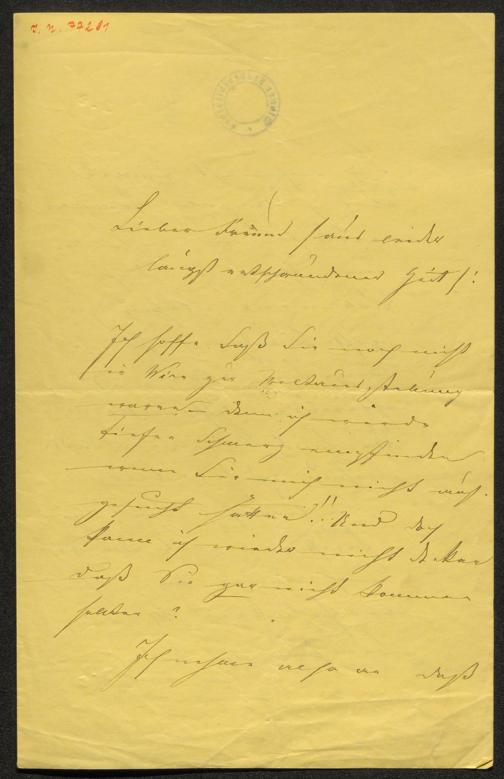 I. N. 77281
Lieber Freund (aus leider
längst entschwundener Zeit)!
Ich hoffe daß Sie noch nicht
in Wien zur Weltausstellung
waren denn ich würde
tiefen Schmerz empfinden
wenn Sie mich nicht auf-
gesucht hätten!! Und doch
kann ich wieder nicht denken
daß Sie gar nicht kommen
sollten?
Ich nehme also an daß